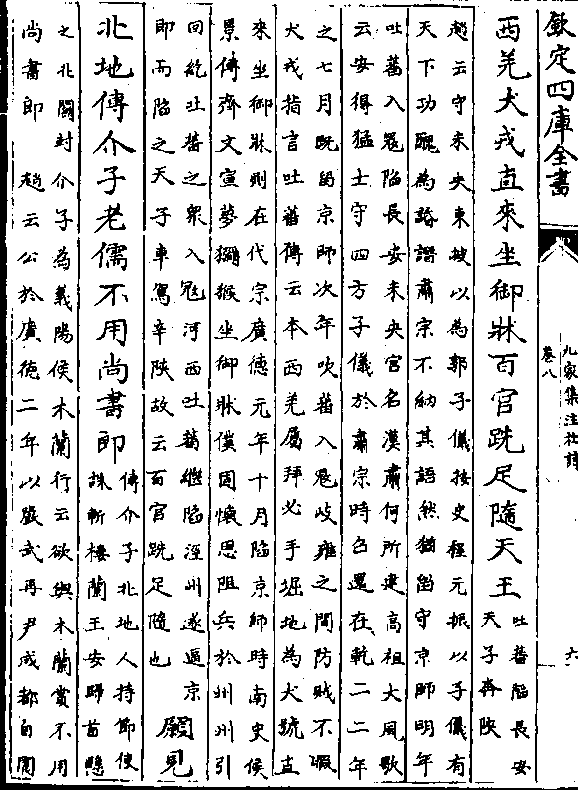 欽定四庫全書
九家集注杜詩
卷八
六
西羌犬戎直來坐御牀百官跣足隨天王
吐蕃陷長安
天子奔陝
趙云守未央東坡以為郭子儀按史程元振以子儀有
天下功醜為詆譖肅宗不納其語然猶留守京師明年
吐蕃入冦陷長安未央宫名漢蕭何所建高祖大風歌
云安得猛士守四方子儀於肅宗時召還在乾二二年
之七月既留京師次年吹蕃入冦岐雍之間防賊不暇
犬戎指言吐蕃傳云本西羌屬拜必手堀地為犬號直
來坐御牀則在代宗廣德元年十月陷京師時南史侯
景傳齊文宣夢獼猴坐御牀僕固懷恩阻兵於州州引
回紇吐蕃之衆入冦河西吐蕃繼陷涇州遂逼京
即而陷之天子車駕幸陝故云百官跣足隨也
願見
北地傅介子老儒不用尚書郎
傅介子北地人持節使
誅斬樓蘭王安歸首懸
之北闕封介子為義陽侯木蘭行云欲與木蘭賞不用
尚書郎 趙云公於廣德二年以嚴武再尹成都自閬